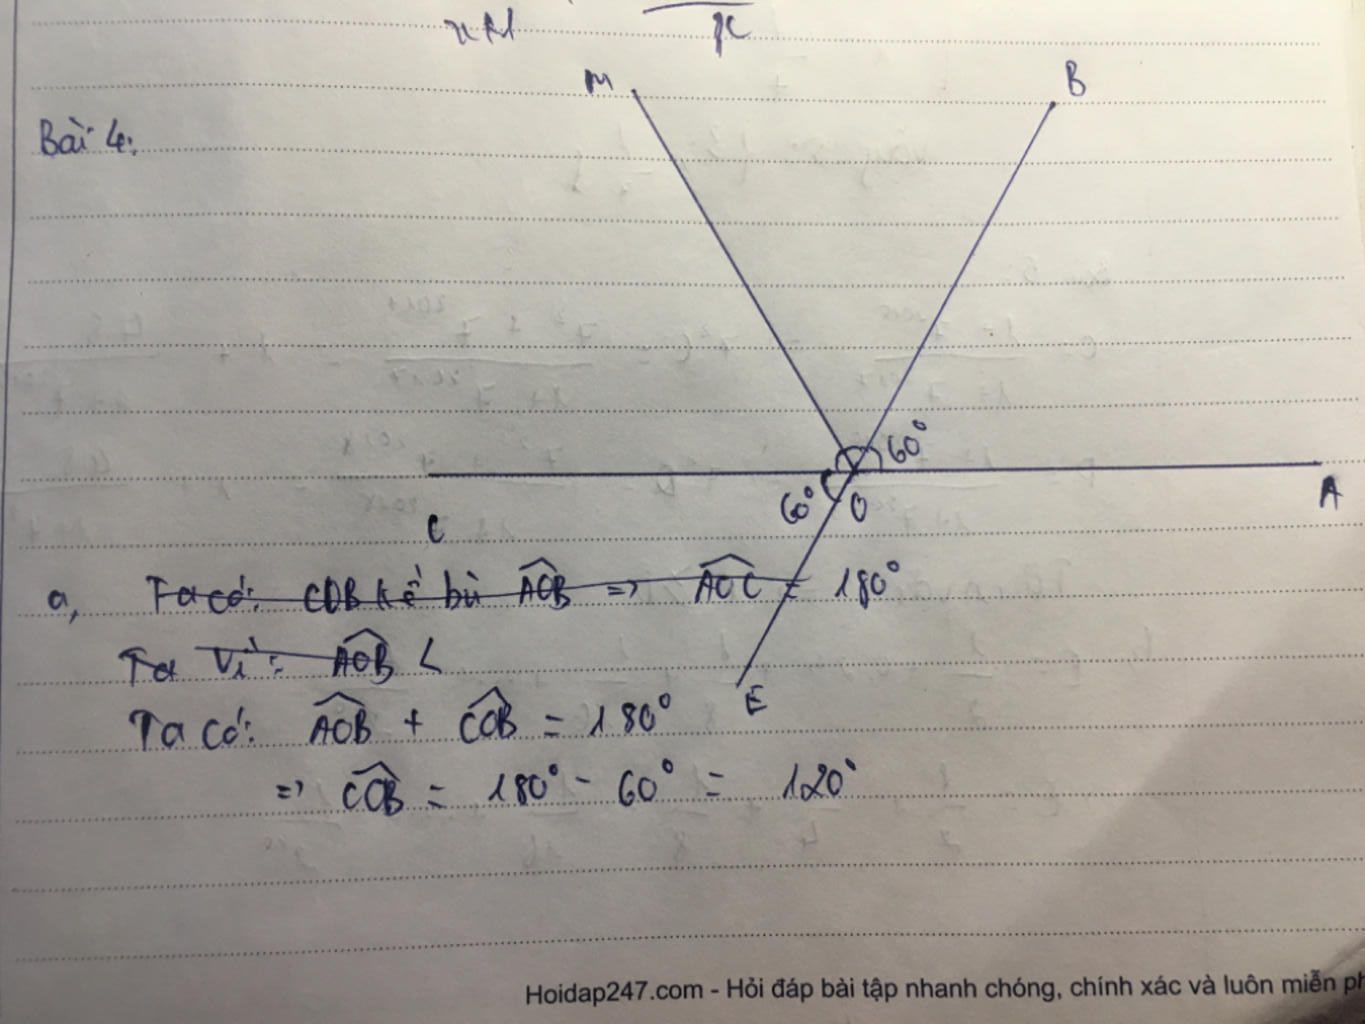 M
B
Bài 4:
60°
60° O
A
C
a, Ta có: COB kề bù AOB => AOC = 180°
Ta Vì: AOB <
E
Ta có: AOB + COB = 180°
=> COB = 180° - 60° = 120°
Hoidap247.com - Hỏi đáp bài tập nhanh chóng, chính xác và luôn miễn ph